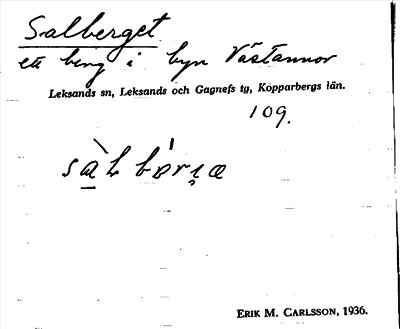 Salberget
ett berg i byn Västannor
Leksands sn, Leksands och Gagnefs tg, Kopparbergs län.
109.
ERIK M. CARLSSON, 1936.